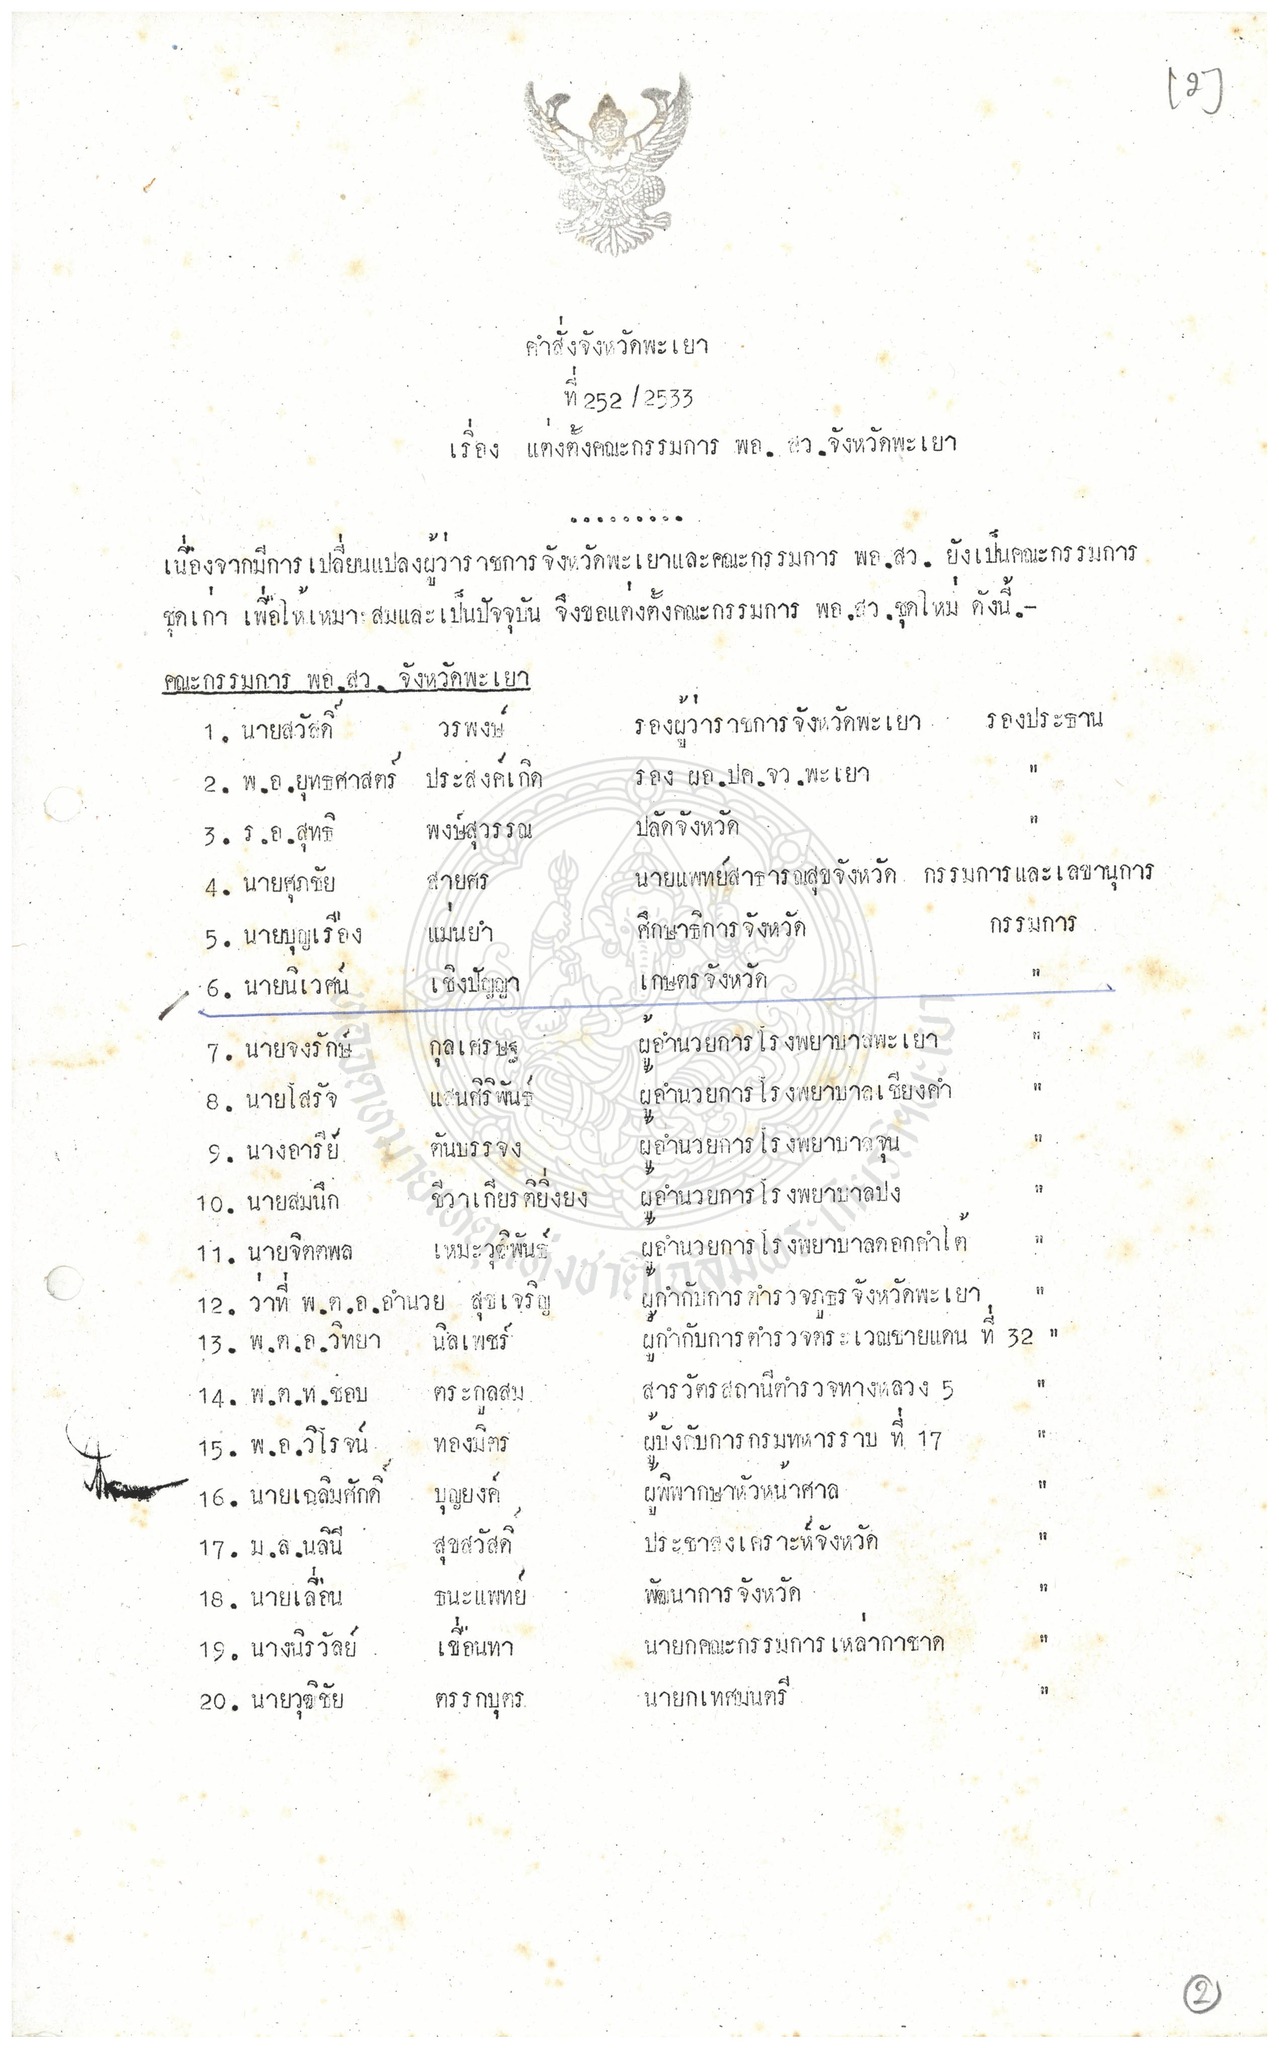 [๒]
คำสั่งจังหวัดพะเยา
ที่ 252 /2533
เรื่อง แต่งตั้งคณะกรรมการ พอ. สว.จังหวัดพะเยา
.........
เนื่องจากมีการเปลี่ยนแปลงผู้ว่าราชการจังหวัดพะเยาและคณะกรรมการ พอ.สว. ยังเป็นคณะกรรมการ
ชุดเก่า เพื่อให้เหมาะสมและเป็นปัจจุบัน จึงขอแต่งตั้งคณะกรรมการ พอ.สว.ชุดใหม่ ดังนี้.-
คณะกรรมการ พอ.สว. จังหวัดพะเยา
1. นายสวัสดิ์ วรพงษ์ รองผู้ว่าราชการจังหวัดพะเยา รองประธาน
2. พ.อ.ยุทธศาสตร์ ประสงค์เกิด รอง ผอ.ปค.จว.พะเยา "
3. ร.อ.สุทธิ พงษ์สุวรรณ ปลัดจังหวัด "
4. นายศุภชัย สายศร นายแพทย์สาธารณสุขจังหวัด กรรมการและเลขานุการ
5. นายบุญเรือง แม่นยำ ศึกษาธิการจังหวัด กรรมการ
6. นายนิเวศน์ เชิงปัญญา เกษตรจังหวัด "
7. นายจงรักษ์ กุลเศรษฐ ผู้อำนวยการโรงพยาบาลพะเยา "
8. นายโสรัจ แสนศิริพันธ์ ผู้อำนวยการโรงพยาบาลเชียงคำ "
9. นางอารีย์ ตันบรรจง ผู้อำนวยการโรงพยาบาลจุน "
10. นายสมนึก ชีวาเกียรติยิ่งยง ผู้อำนวยการโรงพยาบาลปง "
11. นายจิตตพล เหมะวุฒิพันธ์ ผู้อำนวยการโรงพยาบาลดอกคำใต้ "
12. ว่าที่ พ.ต.อ.อำนวย สุขเจริญ ผู้กำกับการตำรวจภูธรจังหวัดพะเยา "
13. พ.ต.อ.วิทยา นิลเพชร์ ผู้กำกับการตำรวจตระเวณชายแดน ที่ 32 "
14. พ.ต.ท.ชอบ ตระกูลสม สารวัตรสถานีตำรวจทางหลวง 5 "
15. พ.อ.วิโรจน์ ทองมิตร ผู้บังคับการกรมทหารราบ ที่ 17 "
16. นายเฉลิมศักดิ์ บุญยงค์ ผู้พิพากษาหัวหน้าศาล "
17. ม.ล.นลินี สุขสวัสดิ์ ประชาสงเคราะห์จังหวัด "
18. นายเลื่อน ธนะแพทย์ พัฒนาการจังหวัด "
19. นางนิรวัลย์ เขื่อนทา นายกคณะกรรมการเหล่ากาชาด "
20. นายวุฒิชัย ตรรกบุตร นายกเทศมนตรี "
2